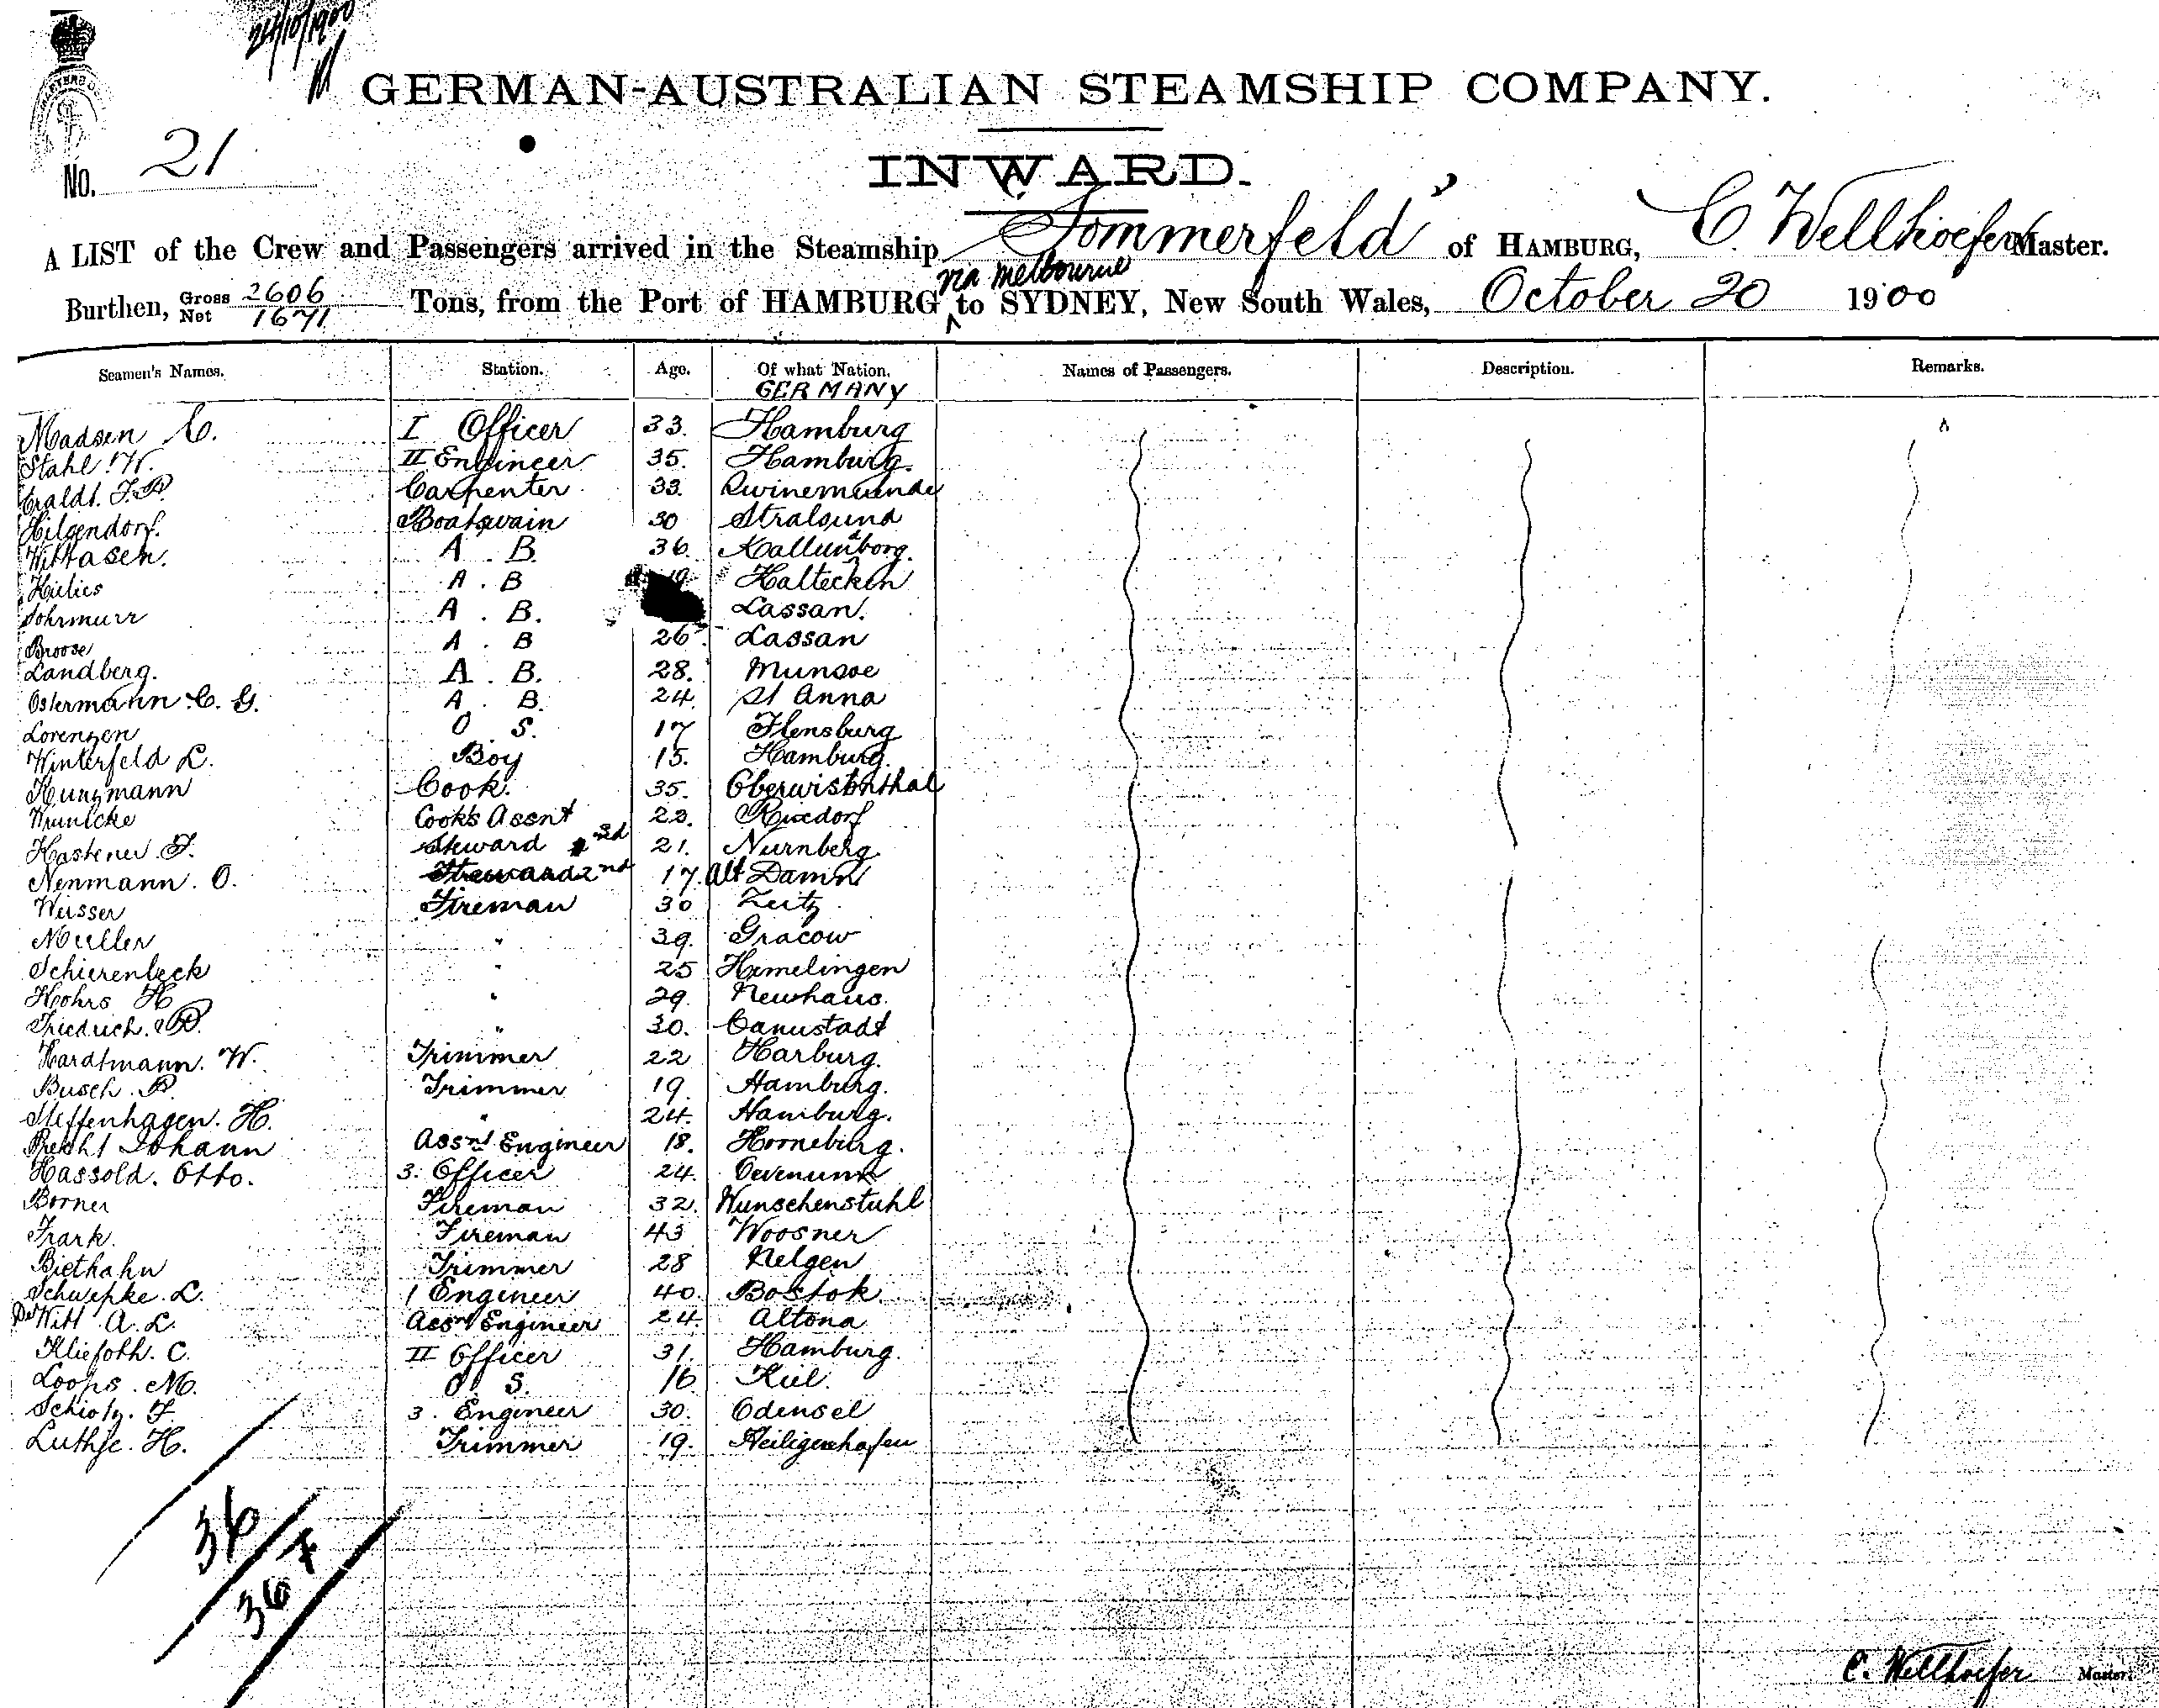 24/10/1900
GERMAN-AUSTRALIAN STEAMSHIP COMPANY.
No. 21
INWARD.
A LIST of the Crew and Passengers arrived in the Steamship Sommerfeld of HAMBURG, C. Wellhoefer Master.
via Melbourne
Burthen, Gross 2606 Net 1671 Tons, from the Port of HAMBURG to SYDNEY, New South Wales, October 20 1900
Seamen's Names. Station. Age. Of what Nation. Names of Passengers. Description. Remarks.
GERMANY
Madsen C. I Officer 33. Hamburg
Stahl W. II Engineer 35. Hamburg.
Carpenter 33.
Hilgendorf. Boatswain 30 Stralsund
A. B. 36.
A. B
A. B. Lassan.
Broose A. B 26 Lassan
Landberg. A. B. 28. Munsoe
Ostermann C. G. A. B. 24 St Anna
Lorenzen O S. 17 Flensburg
Winterfeld L. Boy 15. Hamburg.
Kunzmann Cook. 35. Oberwisenthal
Cook's Assnt 22. Rixdorf
Kastener F. Steward 21. Nurnberg
Nenmann. O. Steward 2nd 17. Alt Damm
Weisser Fireman 30 Zeitz
Muller " 39. Gracow
Schierenbeck " 25 Hemelingen
Kohrs H " 29. Neuhaus.
Friedrich. P. " 30. Canustadt
Hardtmann. W. Trimmer 22 Harburg.
Busch. P. Trimmer 19. Hamburg.
Steffenhagen. H. " 24. Hamburg.
Precht Johann Assnt Engineer 18. Horneburg.
Hassold. Otto. 3. Officer 24.
Borner Fireman 32. Wunschenstuhl
Frark. Fireman 43 Woosner
Biethahn Trimmer 28 Nelgen
Schwepke. L. 1 Engineer 40.
De Witt A. L. Assnt Engineer 24. Altona
Kliefoth. C. II Officer 31. Hamburg.
Loops. M. O. S. 16 Kiel.
Schiotz. F. 3. Engineer 30. Odensel
Luthje. H. Trimmer 19. Heiligenhafen
36
36
C. Wellhoefer Master.